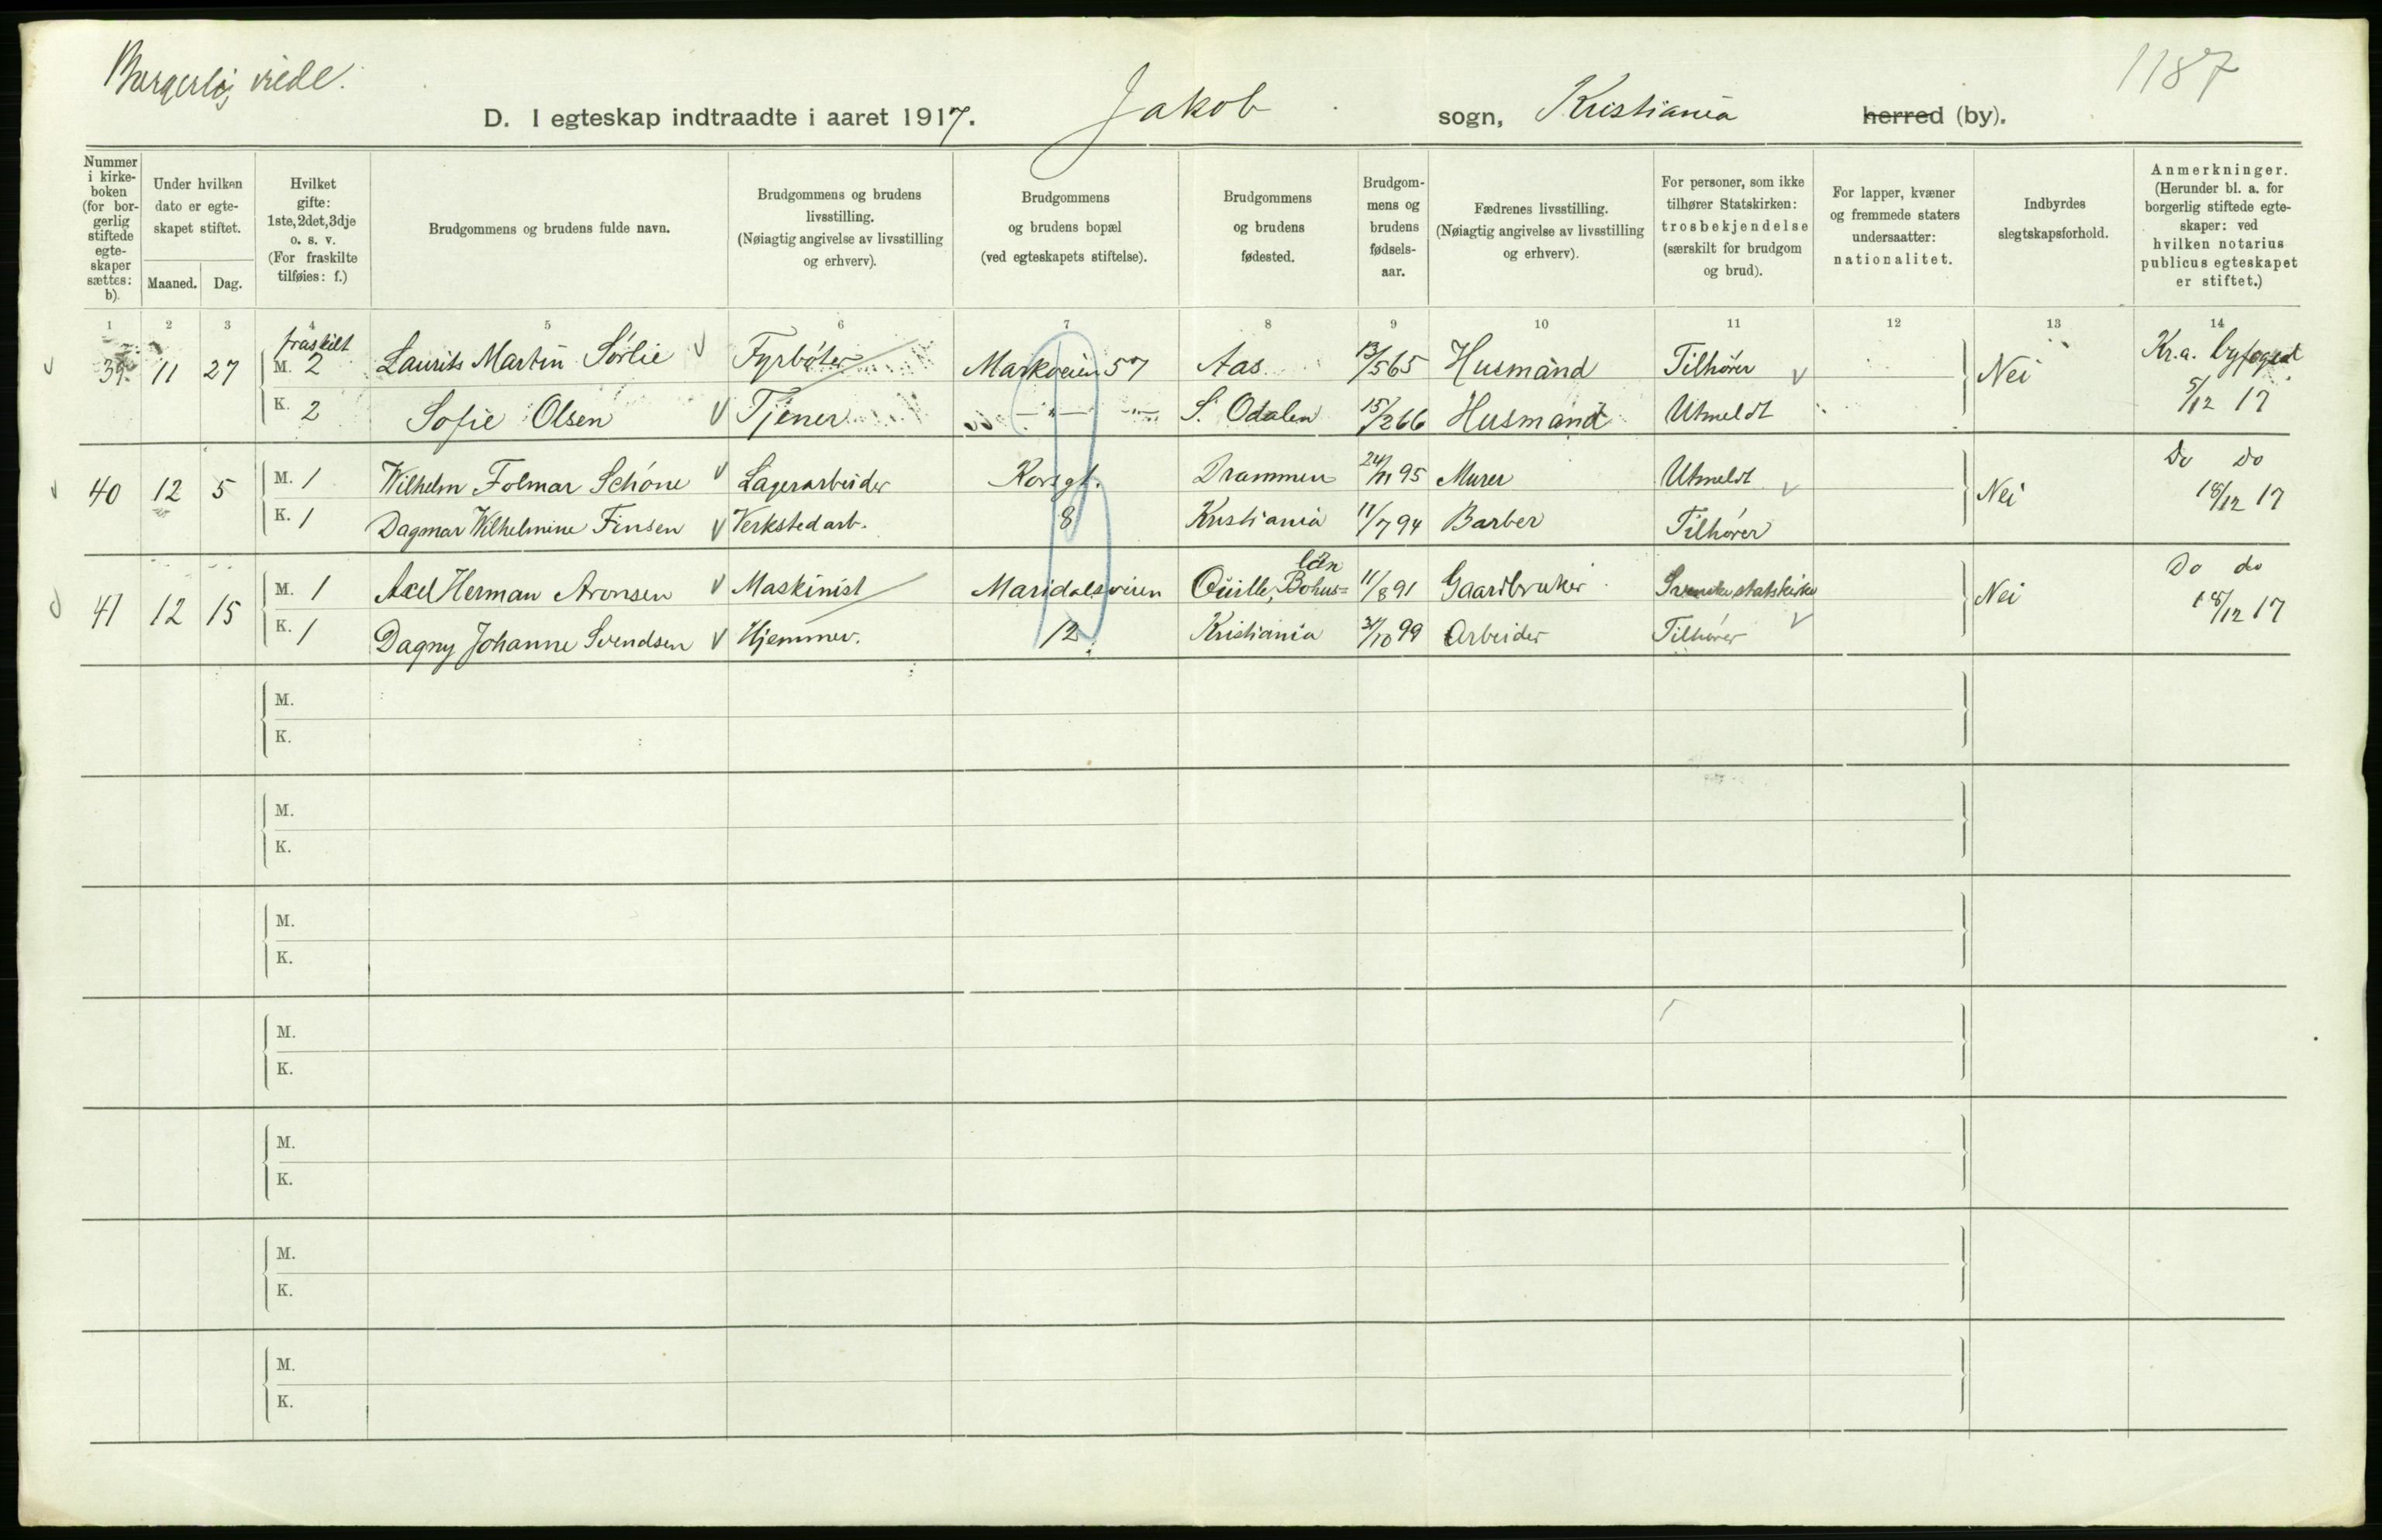 Borgerlig viede.
1187
D. I egteskap indtraadte i aaret 1917. Jakob sogn, Kristiania herred (by).
Nummer i kirkeboken (for borgerlig stiftede egteskaper sættes: b).
Under hvilken dato er egteskapet stiftet.
Maaned. Dag.
Hvilket gifte: 1ste, 2det, 3dje o. s. v. (For fraskilte tilføies: f.)
Brudgommens og brudens fulde navn.
Brudgommens og brudens livsstilling. (Nøiagtig angivelse av livsstilling og erhverv).
Brudgommens og brudens bopæl (ved egteskapets stiftelse).
Brudgommens og brudens fødested.
Brudgommens og brudens fødselsaar.
Fædrenes livsstilling. (Nøiagtig angivelse av livsstilling og erhverv).
For personer, som ikke tilhører Statskirken: trosbekjendelse (særskilt for brudgom og brud).
For lapper, kvæner og fremmede staters undersaatter: nationalitet.
Indbyrdes slegtskapsforhold.
Anmerkninger. (Herunder bl. a. for borgerlig stiftede egteskaper: ved hvilken notarius publicus egteskapet er stiftet.)
1 2 3 4 5 6 7 8 9 10 11 12 13 14
fraskilt
39. 11 27 M. 2 Laurits Martin Sørlie Fyrbøter Markveien 57 Aas 13/5 65 Husmand Tilhører Nei Kr.a. byfoged
K. 2 Sofie Olsen Tjener —"— —"— S. Odalen 15/2 66 Husmand Utmeldt 5/12 17
40 12 5 M. 1 Wilhelm Folmar Schöne Lagerarbeider Korsgt. Drammen 24/11 95 Murer Utmeldt Nei Do do
K. 1 Dagmar Wilhelmine Finsen Verkstedarb. 8 Kristiania 11/7 94 Barber Tilhører 18/12 17
41 12 15 M. 1 Axel Herman Aronsen Maskinist Maridalsveien Quille, Bohus= län 11/8 91 Gaardbruker Svenske statskirke Nei Do do
K. 1 Dagny Johanne Svendsen Hjemmev. 12. Kristiania 31/10 99 Arbeider Tilhører 18/12 17
M.
K.
M.
K.
M.
K.
M.
K.
M.
K.
M.
K.
M.
K.